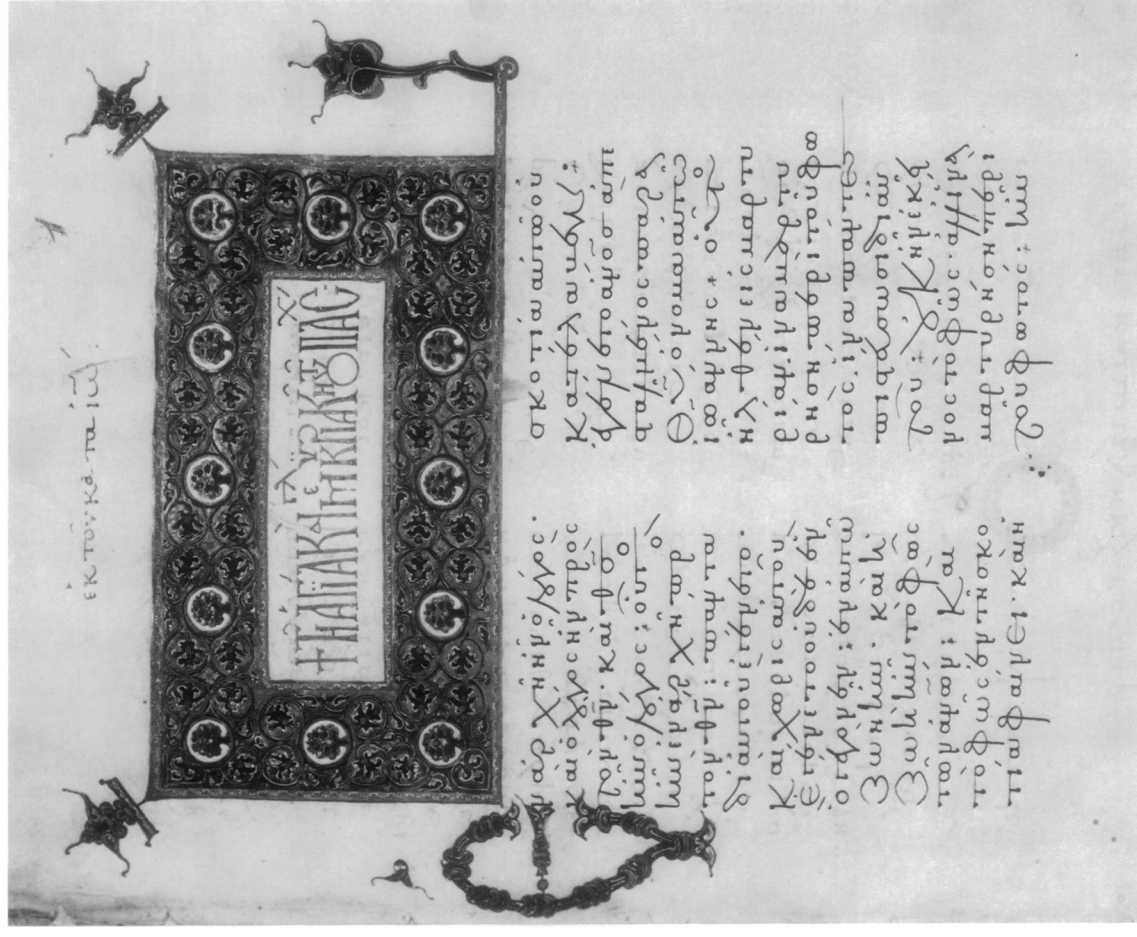 ἐκ τοῦ κατὰ ἰω
+ ΤΗ ΑΓΙΑ ΚΑΙ ΜΕΓΑΛΗ ΚΥΡΙΑΚΗ ΤΟΥ ΠΑΣΧΑ
Ἐν ἀρχῆ ἦν ὁ λόγος.
καὶ ὁ λόγος ἦν πρὸς
τὸν θν. καὶ θς
ἦν ὁ λόγος· οὗτος
ἦν ἐν ἀρχῆ πρὸς
τὸν θν· πάντα
δι αὐτοῦ ἐγένετο.
καὶ χωρὶς αὐτοῦ
ἐγένετο οὐδὲ ἕν
ὃ γέγονεν· ἐν αὐτῶ
ζωὴ ἦν. καὶ ἡ
ζωὴ ἦν τὸ φῶς
τῶν ἀνων· καὶ
τὸ φῶς ἐν τῆ σκο
τία φαίνει. καὶ ἡ
σκοτία αὐτὸ οὐ
κατέλαβεν:
ἐγένετο ἄνος ἀπε
σταλμένος παρὰ
θυ ὄνομα αὐτῶ
ἰωάννης· οὗτος
ἦλθεν εἰς μαρτυ
ρίαν· ἵνα μαρτυ
ρήση περὶ τοῦ φω
τός· ἵνα πάντες
πιστεύσωσι δι
αὐτοῦ· οὐκ ἦν ἐκεῖ
νος τὸ φῶς. ἀλλ ἵνα
μαρτυρήση περὶ
τοῦ φωτός· ἦν